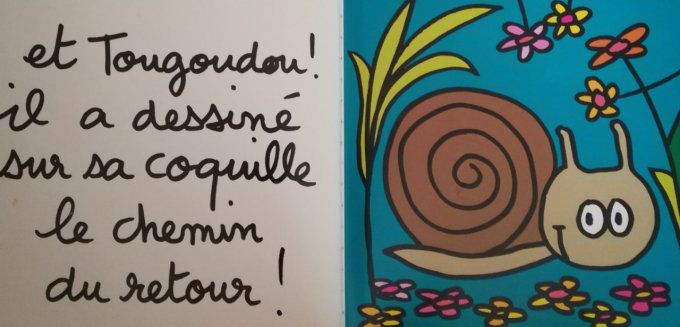 et Tougoudou!
il a dessiné
sur sa coquille
le chemin
du retour!